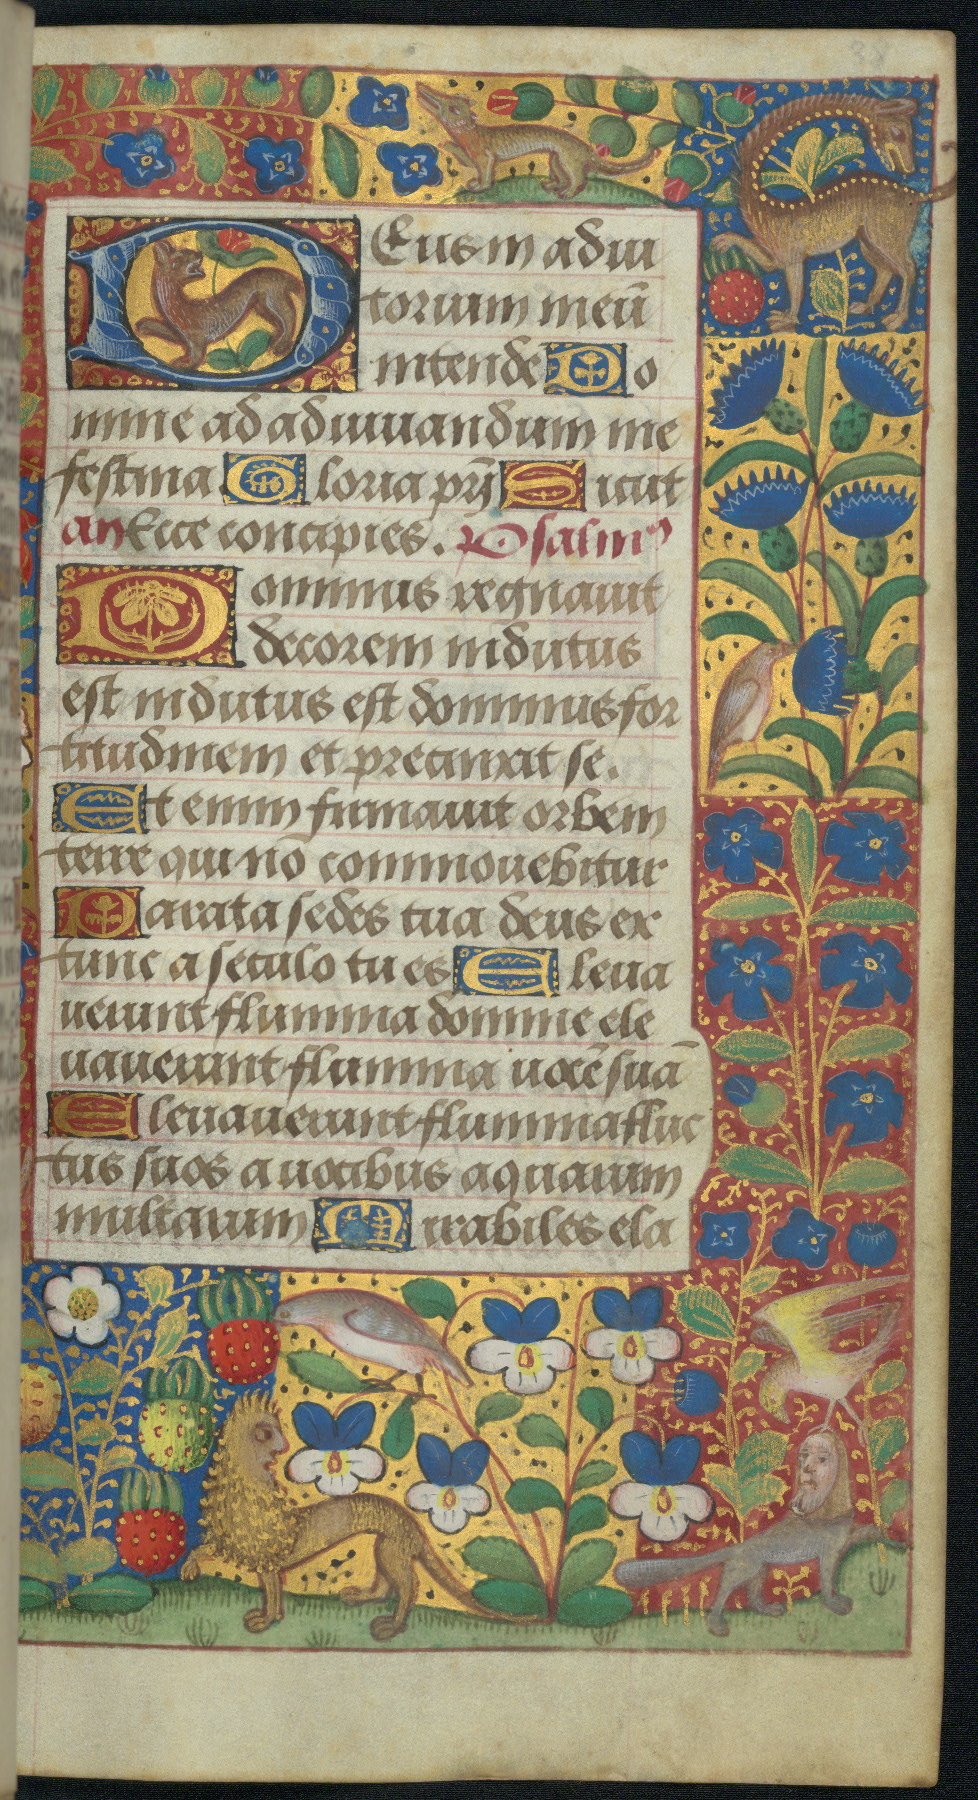 Deus in adiu
torium meū
intende Do
mine ad adiuuandum me
festina Gloria pr̄i Sicut
an Ecce concipies. Psalmꝰ
Dominus regnauit
decorem indutus
est indutus est dominus for
titudinem et precinxit se.
Et enim firmauit orbem
terre qui nō commouebitur
Parata sedes tua deus ex
tunc a seculo tu es Eleua
uerunt flumina domine ele
uauerunt flumina uocē suā
Eleuauerunt flumina fluc
tus suos a uocibus aquarum
multarum Mirabiles ela